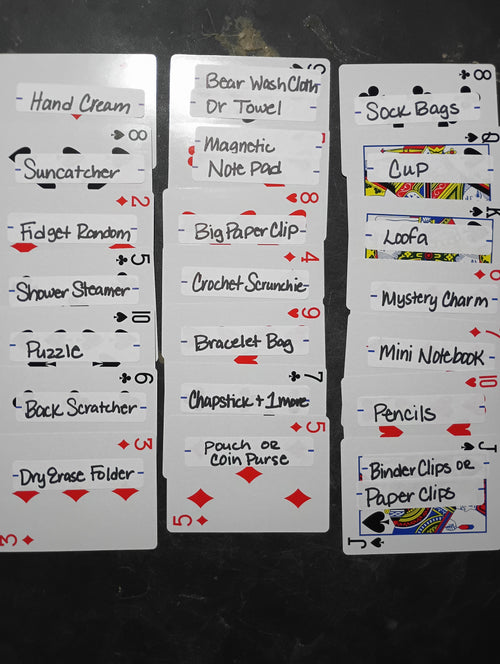 Hand Cream
8
Suncatcher
2
Fidget Random
5
Shower Steamer
10
Puzzle
6
Back Scratcher
3
Dry Erase Folder
3
Bear Wash Cloth
Or Towel
Magnetic
Note Pad
8
Big Paper Clip
4
Crochet Scrunchie
9
Bracelet Bag
7
Chapstick + 1 more
5
Pouch OR
Coin Purse
5
8
Sock Bags
Q
Cup
K
Loofa
Mystery Charm
7
Mini Notebook
10
Pencils
J
Binder Clips OR
Paper Clips
J